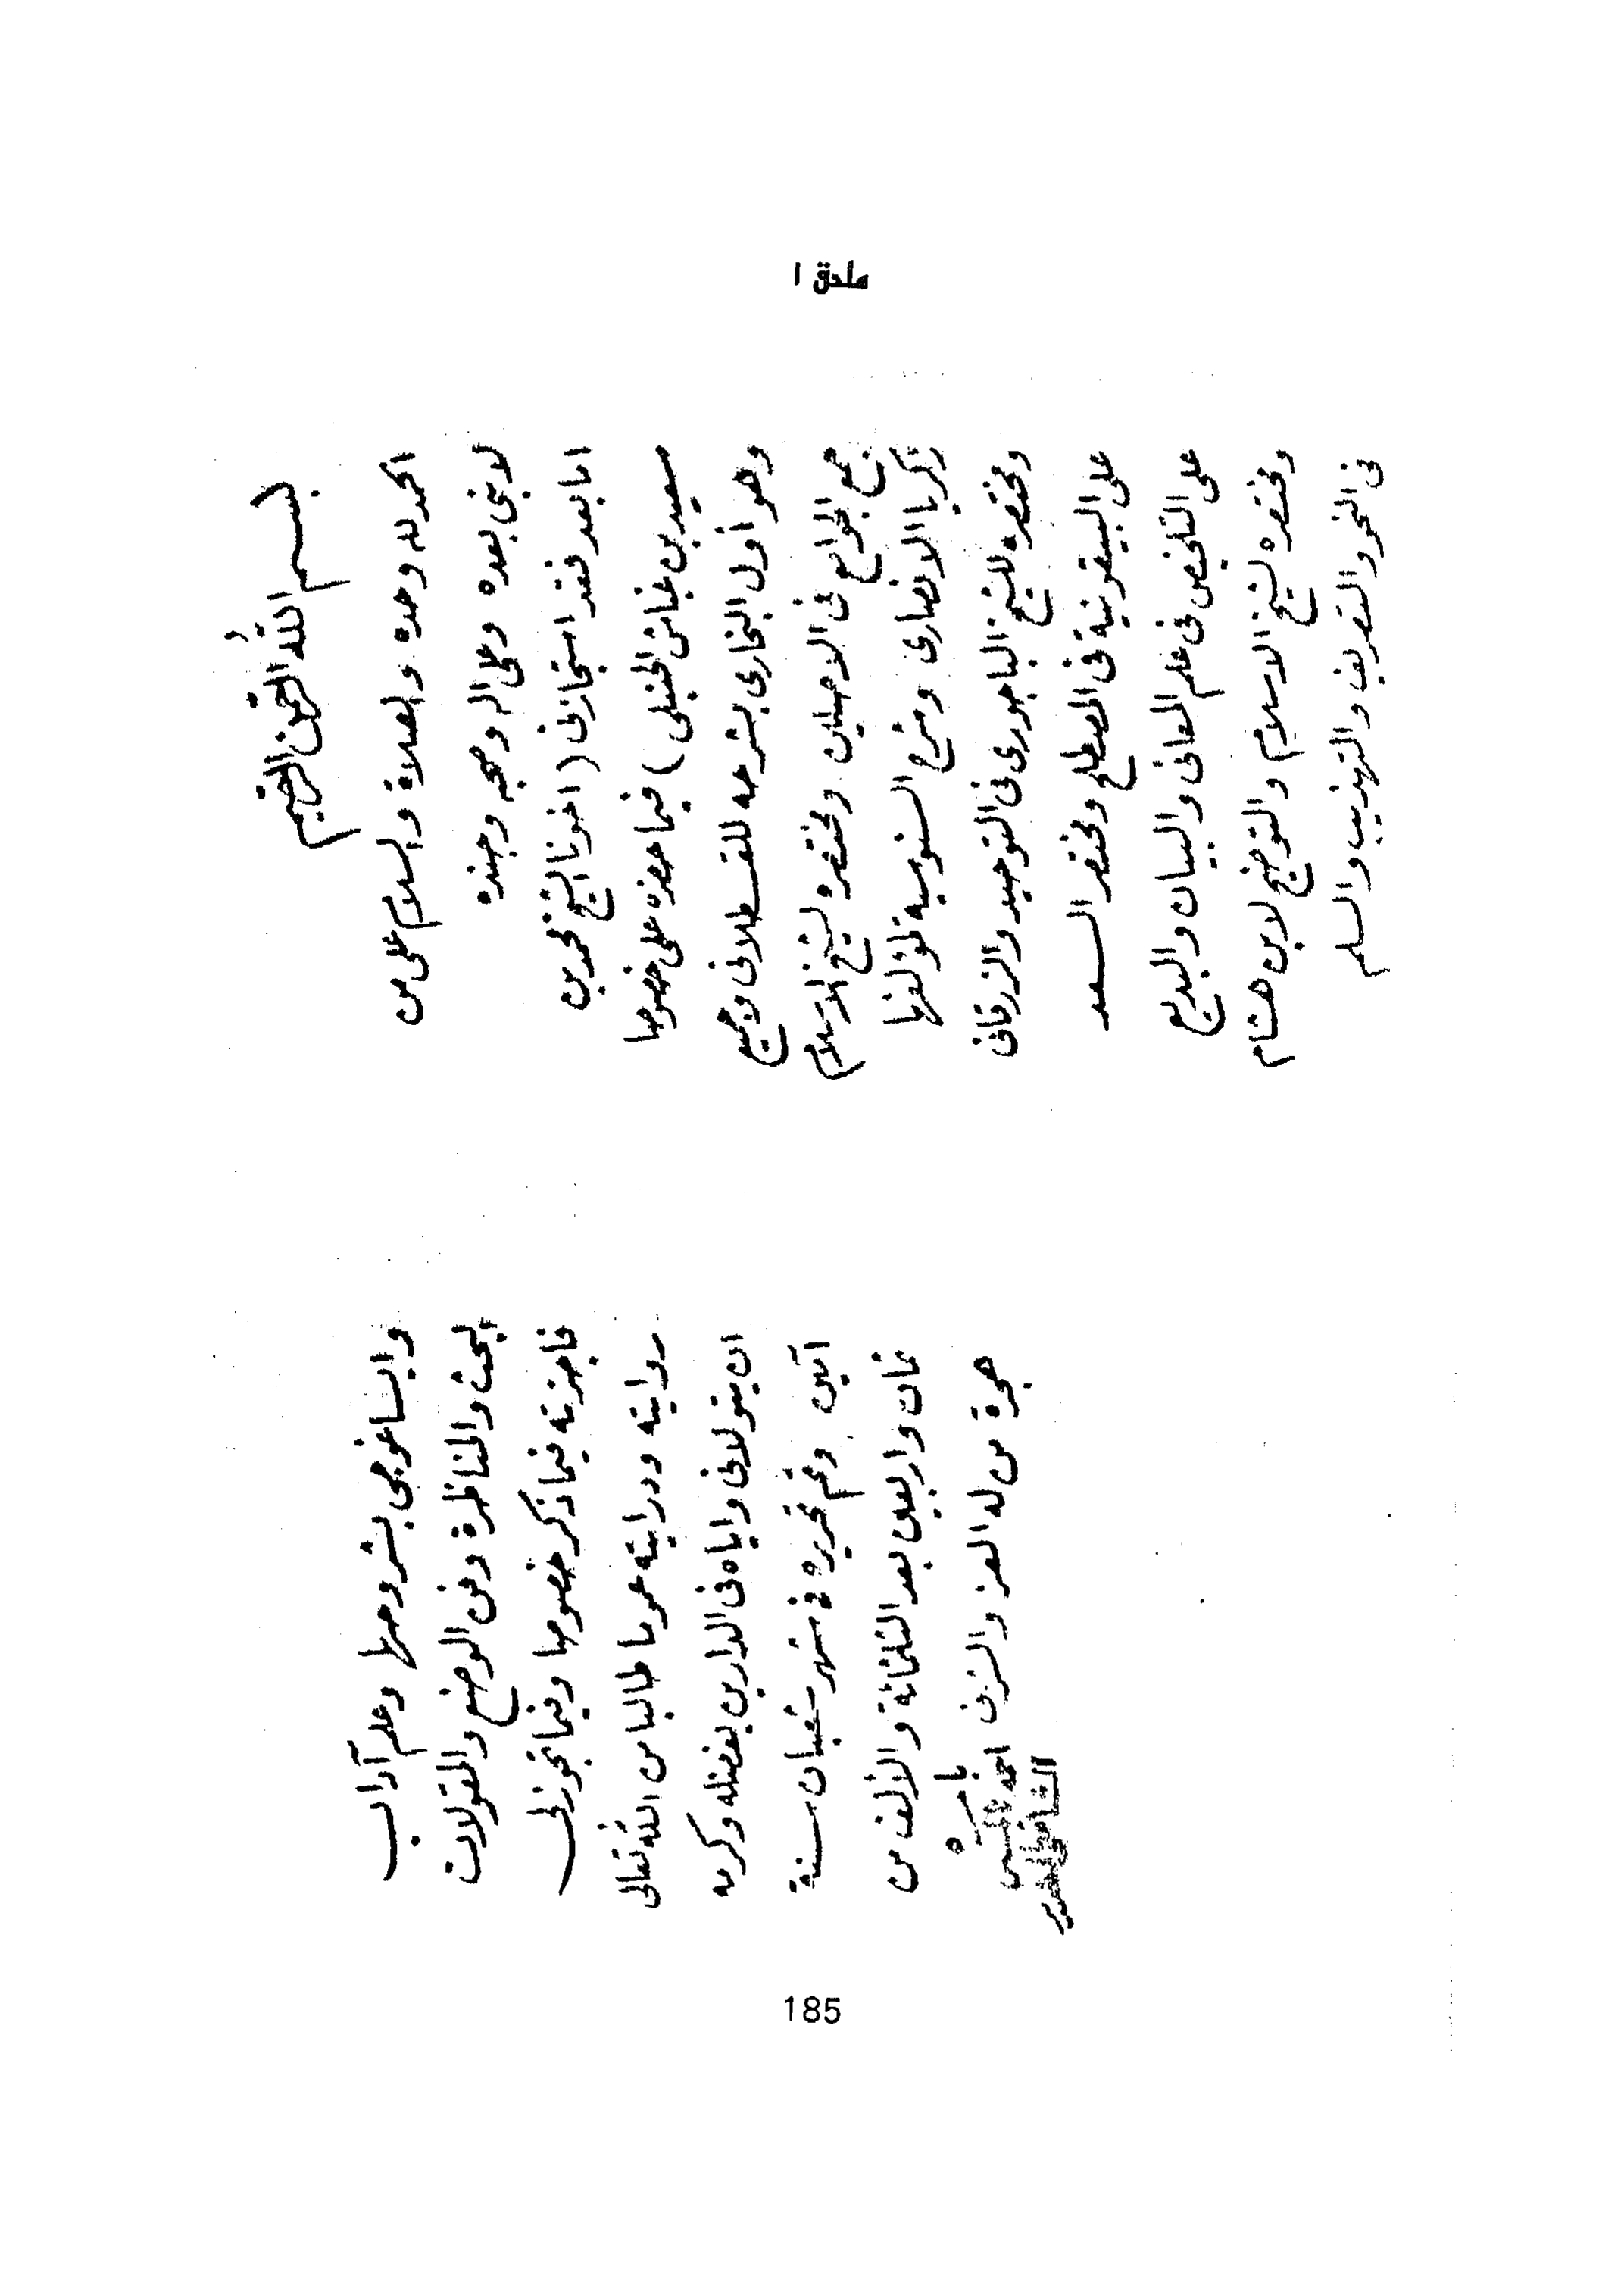 ملحق ١
بسم اللّٰه الرحمن الرحيم
الحمد لله وحده والصلاة والسلام على من
لا نبى بعده وعلى اله وصحبه وجنده
اما بعد فقد استجازنى (اخونا الشيخ محمد بن
سعيد بن غباش الحنبلى) فيما حضره على خصوصا
وهو أول البخارى بشرحه للقسطلانى وجميع
جمع الجوامع فى الاصلين ومختصره لشيخ الاسلام
زكريا الانصارى وشرح السنوسية لمؤلفها
ومختصره للشيخ الباجورى فى التوحيد والزرقانى
على البيقونية فى المصطلح ومختصر السعد
على التلخيص فى علم المعانى والبيان والبديع
ومختصره لشيخ الاسلام والتوضيح لابن هشام
فى النحو والتصريف والتهذيب والسلم
وايساغوجى بشروحها وعلم آداب
البحث والمناظرة وفن الوضع والمقولات
فاجزته فيما ذكر خصوصا وفيما تجوز لى
روايته ودرايته عموما طالبا من اللّٰه تعالى
ان يتولانى واياه فى الدارين بفضله وكرمه
آمين وتم تحريره فى شهر شعبان سنة
ثمان واربعين بعد الثلثمائة والألف من
هجرة من له العز والشرف احمد
الشافعى
185